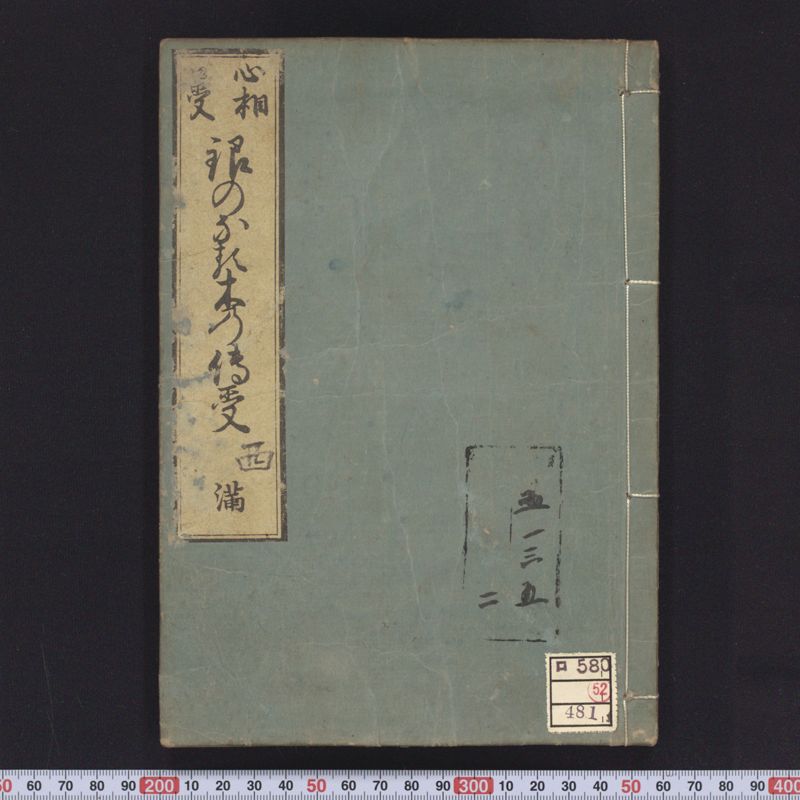 心相
受
銀のなる木の傳受
西
満
五
一三五
二
ロ 580
52
481
50 60 70 80 90 200 10 20 30 40 50 60 70 80 90 300 10 20 30 40 50 60 70 80 90 400